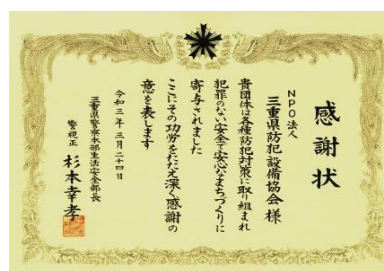 感謝状
NPO法人
三重県防犯設備協会様
貴団体は各種防犯対策に取り組まれ
犯罪のない安全で安心なまちづくりに
寄与されました
ここにその功労をたたえ深く感謝の
意を表します
令和三年三月二十四日
三重県警察本部生活安全部長
警視正 杉本幸孝